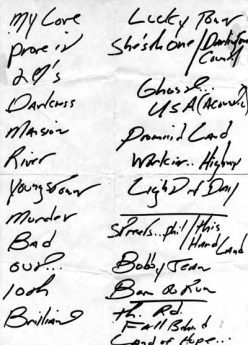 My Love
Prove it
2 
Darkness
Mansion
River
Youngstown
Murder
Bad
out...
10th
Brilliant
Lucky Town
She's the one / Darlington
County
Ghost...
USA (Acoustic)
Promised Land
Workin.. Highway
Light of Day
Streets.. phil / this
Hard Land
Bobby Jean
Born to Run
Th. Rd.
Fall Behind
Land of Hope...